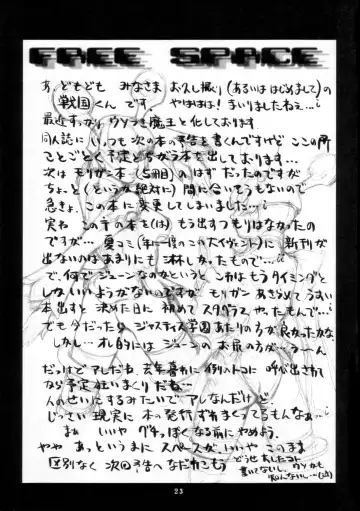 FREE SPACE
あ、どもども みなさま お久し振り(あるいは はじめまして)の
戦国くん です。 やははは! まいりましたねぇ…
最近すっかり ウソつき魔王と化しております。
同人誌に いっつも次の本の予告を書くんですけど ここの所
ことごとく予定とちがう本を 出しております…
次は モリガン本(5冊目)の はず だったのですが
ちょーと(というか絶対に) 間に合いそうもないので
急きょ この本に変更してしまいました…
実ね この手の本を(は) もう出すつもりはなかったの
ですが… 夏コミ(年一度のこの大イヴェント)に 新刊が
出ないのはあまりにも 淋しかったもので…
で、何でジューンなのかというと これはもう タイミングと
しかいいようがないのですが モリガン あきらめて うすい
本出すと 決めた日に 初めて スタグラス やったもんで…
でも今だったら ジャスティス学園あたりの方が良かったかな
しかし… オレ的には ジューンの お尻の方が… うーん
だってほら アレだね、 去年暮れに 例のトコに 呼び出されて
から予定 狂いまくり だね…
人のせいにするみたいで アレなんだけど
じっさい 現実に 本の発行 ずれまくってるもんなぁ…
まぁ いいや グチっぽくなる前に やめよう。
やや あっというまに スペースが、いいや このまま
区別なく 次回予告へ なだれこもう
どうせ たいしたコト
書いてないし、ウソかも
知んないし…(泣)
23